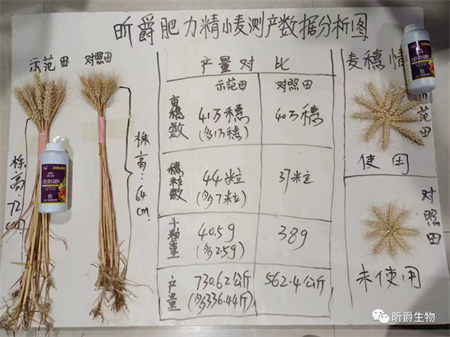 昕爵肥力精小麦测产数据分析图
示范田 对照田
株高72cm
株高:64cm
产量对比
示范田 对照田
亩穗数 41万穗 40万穗
(多1万穗)
穗粒数 44粒 37粒
(多7粒)
千粒重 40.5g 38g
(多2.5g)
产量 730.62公斤 562.4公斤
(多336.44斤)
麦穗情
范田
使用
对照田
未使用
昕爵生物